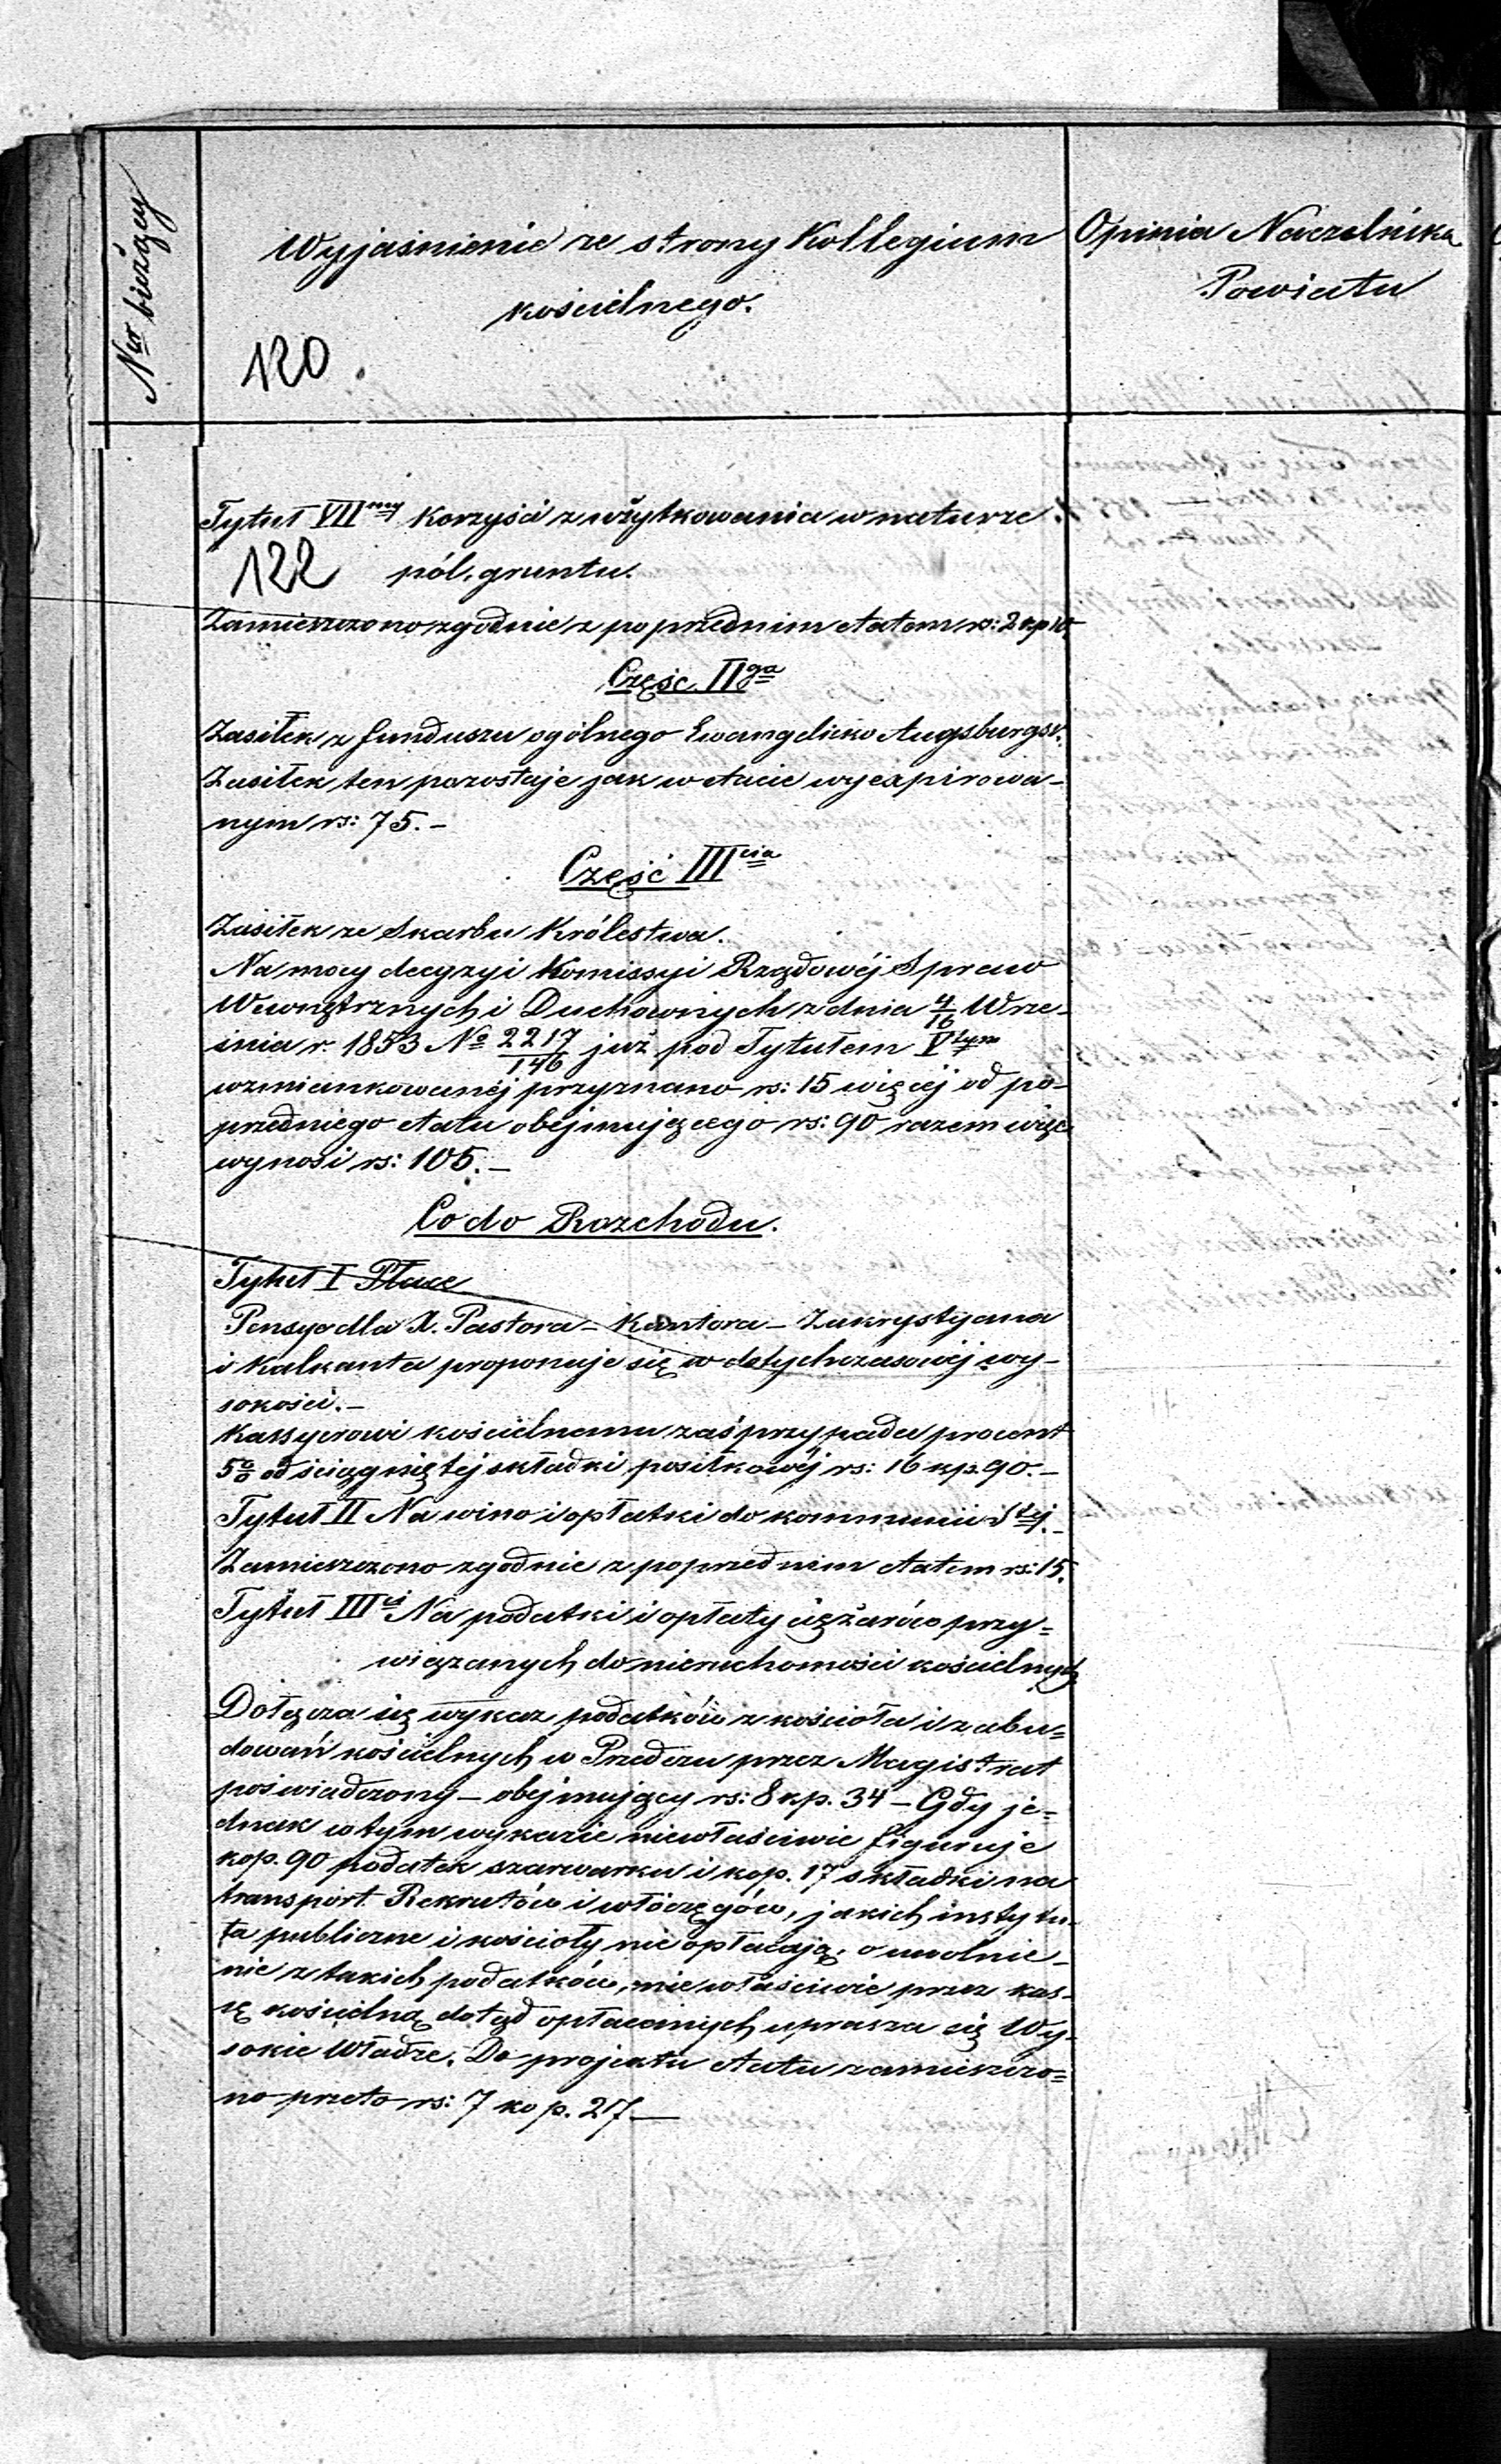 Ner bieżący
Wyjaśnienie ze strony Kollegium
kościelnego.
120
Opinia Naczelnika
Powiatu
Tytuł VIImy Korzyści z użytkowania w naturze
122 pól, gruntu.
Zamieszczono zgodnie z poprzednim etatem rs: 2 kp 10.
Częśc IIga
Zasiłek z funduszu ogólnego Ewangelicko Augsburgsk.
Zasiłek ten pozostaje jak w etacie wyexpirowa-
nym rs: 75.-
Część IIIcia
Zasiłek ze Skarbu Królestwa.
Na mocy decyzyi Kommissyi Rządowéj Spraw
Wewnętrznych i Duchownych z dnia 4/16 Wrze-
śnia r. 1853 No 2217/146 już pod Tytułem Vtym
wzmiankowanéj przyznano rs: 15 więcéj od po-
przedniego etatu obejmującego rs: 90 razem więc
wynosi rs: 105.-
Co do Rozchodu.
Tytuł I Płace
Pensye dla X. Pastora - Kantora - Zakrystyana
i Kalkanta proponuje się w dotychczasowéj wy-
sokości.-
Kassyerowi kościelnemu zaś przypada procent
5% od ściągniętéj składki posiłkowéj rs: 16 kp. 90.-
Tytuł II Na wino i opłatki do kommunii Stéj.-
Zamieszczono zgodnie z poprzednim etatem rs: 15.
Tytuł IIIci Na podatki i opłaty ciężarów przy=
wiązanych do nieruchomości kościelnych
Dołącza się wykaz podatków z kościoła i zabu=
dowań kościelnych w Przedczu przez Magistrat
poświadczony - obejmujący rs: 8 kp. 34 - Gdy je=
dnak w tym wykazie niewłaściwie figuruje
kop. 90 podatek szarwarku i kop. 17 składki na
transport Rekrutów i włóczęgów, jakich instytu-
ta publiczne i kościoły nie opłacają, o uwolnie-
nie z takich podatków, niewłaściwie przez kas-
sę kościelną dotąd opłacanych uprasza się Wy-
sokie Władze. Do projektu etatu zamieszczo=
no przeto rs: 7 kop. 27.-